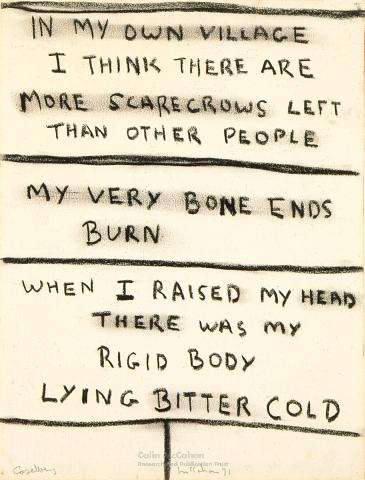 IN MY OWN VILLAGE
I THINK THERE ARE
MORE SCARECROWS LEFT
THAN OTHER PEOPLE
MY VERY BONE ENDS
BURN
WHEN I RAISED MY HEAD
THERE WAS MY
RIGID BODY
LYING BITTER COLD
Colin McCahon
Research and Publication Trust
Caselberg
McCahon 71